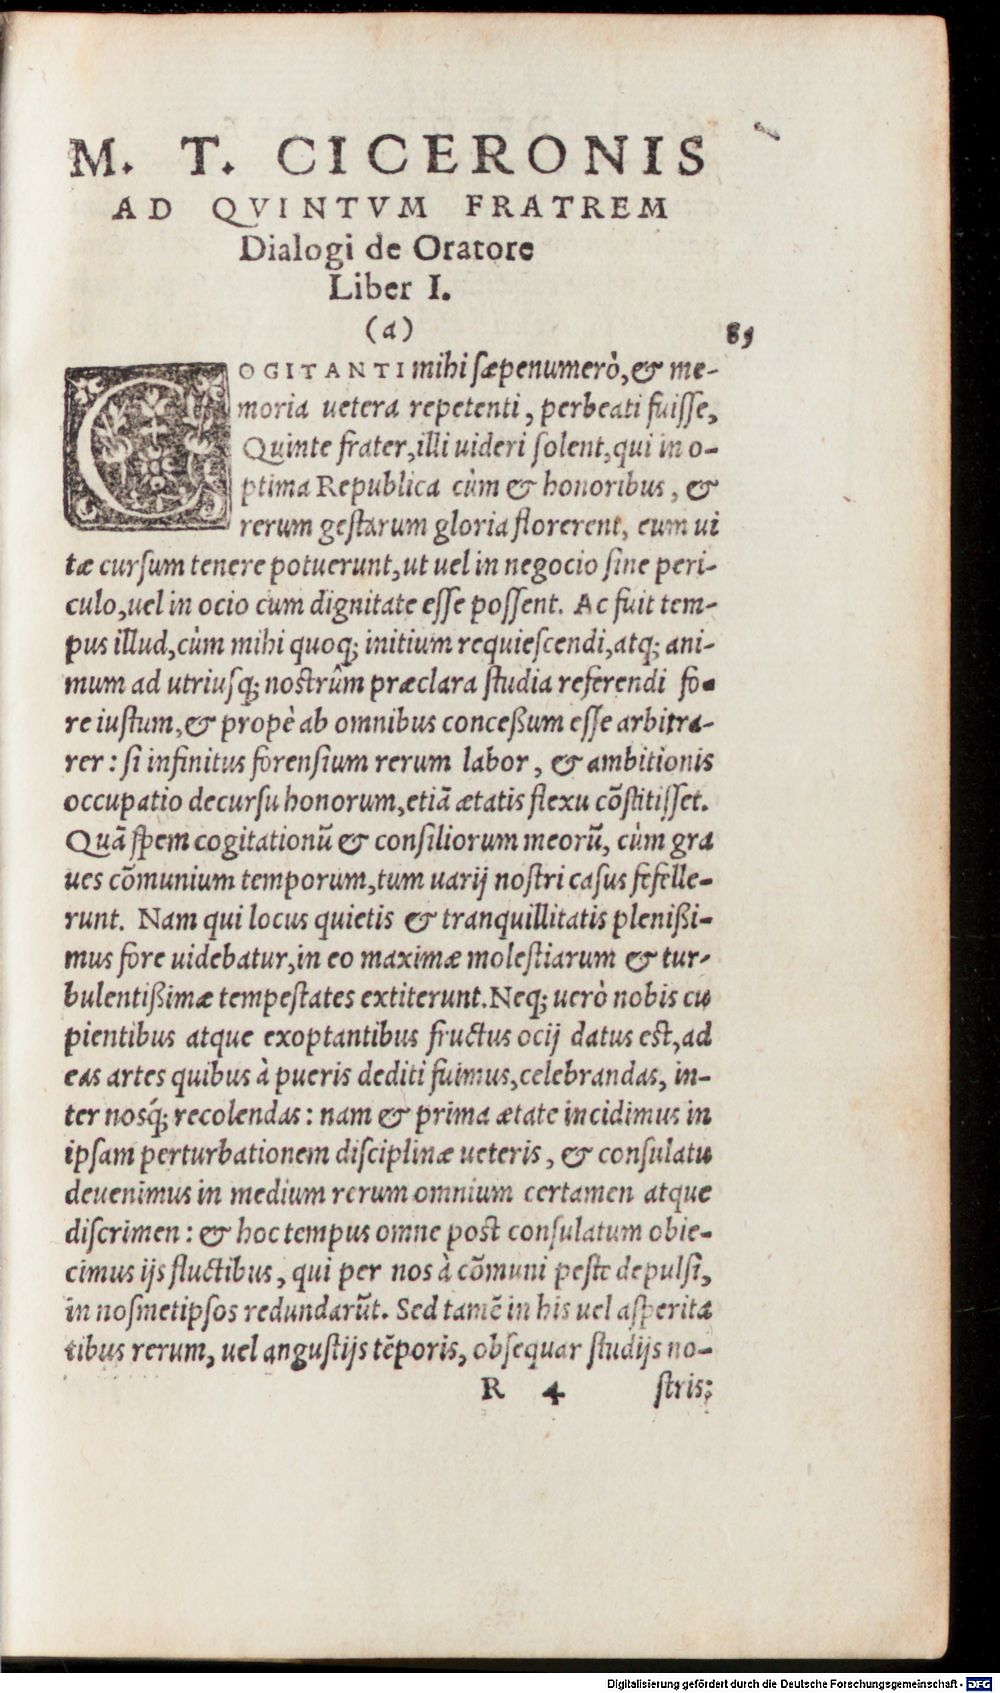 M. T. CICERONIS
AD QVINTVM FRATREM
Dialogi de Oratore
Liber I.
(a)
85
COGITANTI mihi sæpenumerò, & me-
moria uetera repetenti, perbeati fuisse,
Quinte frater, illi uideri solent, qui in o-
ptima Republica cùm & honoribus, &
rerum gestarum gloria florerent, eum ui
tæ cursum tenere potuerunt, ut uel in negocio sine peri-
culo, uel in ocio cum dignitate esse possent. Ac fuit tem-
pus illud, cùm mihi quoq; initium requiescendi, atq; ani-
mum ad utriusq; nostrûm præclara studia referendi fo-
re iustum, & propè ab omnibus conceßum esse arbitra-
rer: si infinitus forensium rerum labor, & ambitionis
occupatio decursu honorum, etiã ætatis flexu cõstitisset.
Quã spem cogitationũ & consiliorum meorũ, cùm gra
ues cõmunium temporum, tum uarij nostri casus fefelle-
runt. Nam qui locus quietis & tranquillitatis plenißi-
mus fore uidebatur, in eo maximæ molestiarum & tur-
bulentißimæ tempestates extiterunt. Neq; uerò nobis cu
pientibus atque exoptantibus fructus ocij datus est, ad
eas artes quibus à pueris dediti fuimus, celebrandas, in-
ter nosq́; recolendas: nam & prima ætate incidimus in
ipsam perturbationem disciplinæ ueteris, & consulatu
deuenimus in medium rerum omnium certamen atque
discrimen: & hoc tempus omne post consulatum obie-
cimus ijs fluctibus, qui per nos à cõmuni peste depulsi,
in nosmetipsos redundarũt. Sed tamẽ in his uel asperita
tibus rerum, uel angustijs tẽporis, obsequar studijs no-
R 4 stris;
Digitalisierung gefördert durch die Deutsche Forschungsgemeinschaft - DFG